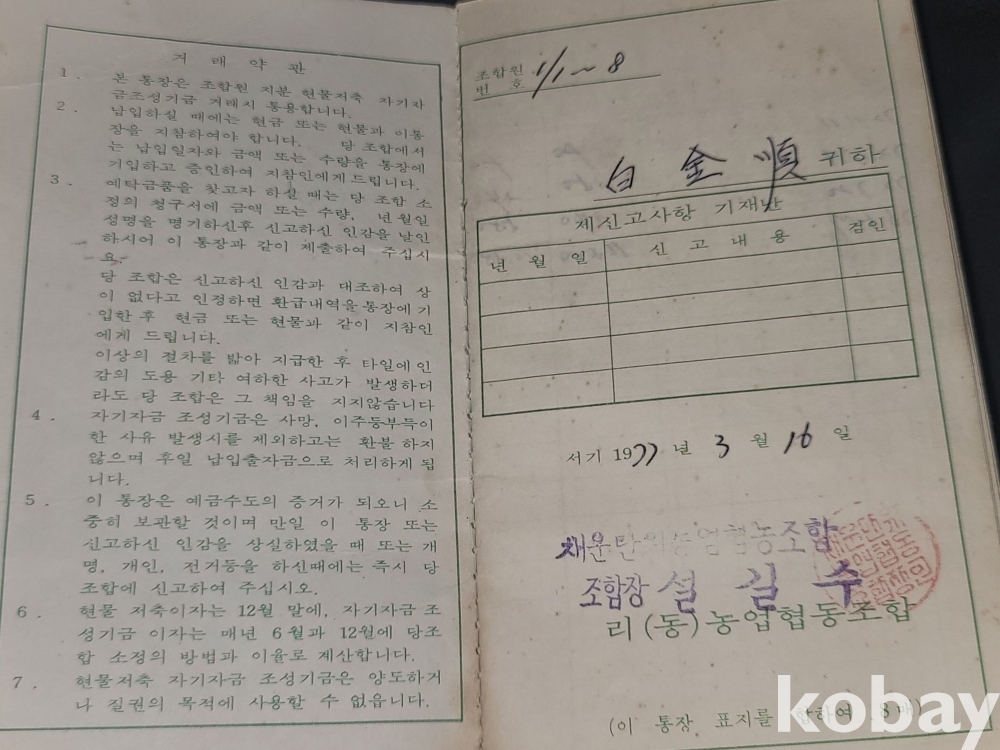 거래약관
1. 본 통장은 조합원 지분 현물저축 자기자
금조성기금 거래시 통용합니다.
2. 납입하실 때에는 현금 또는 현물과 이통
장을 지참하여야 합니다. 당 조합에서
는 납입일자와 금액 또는 수량을 통장에
기입하고 증인하여 지참인에게 드립니다.
3. 예탁금품을 찾고자 하실 때는 당 조합 소
정의 청구서에 금액 또는 수량, 년월일
성명을 명기하신후 신고하신 인감을 날인
하시어 이 통장과 같이 제출하여 주십시
요.
당 조합은 신고하신 인감과 대조하여 상
이 없다고 인정하면 환급내역을 통장에 기
입한 후 현금 또는 현물과 같이 지참인
에게 드립니다.
이상의 절차를 밟아 지급한 후 타일에 인
감의 도용 기타 여하한 사고가 발생하더
라도 당 조합은 그 책임을 지지않습니다
4. 자기자금 조성기금은 사망, 이주등부득이
한 사유 발생시를 제외하고는 환불 하지
않으며 후일 납입출자금으로 처리하게 됩
니다.
5. 이 통장은 예금수도의 증거가 되오니 소
중히 보관할 것이며 만일 이 통장 또는
신고하신 인감을 상실하였을 때 또는 개
명, 개인, 전거등을 하신때에는 즉시 당
조합에 신고하여 주십시오.
6. 현물 저축이자는 12월 말에, 자기자금 조
성기금 이자는 매년 6월과 12월에 당조
합 소정의 방법과 이율로 계산합니다.
7. 현물저축 자기자금 조성기금은 양도하거
나 질권의 목적에 사용할 수 없읍니다.
조합원
번호 1/1~8
白金順 귀하
제신고사항 기재난
년월일 신고내용 검인
서기 1977년 3월 16일
채운 농업협동조합
조합장 설길수
리(동)농업협동조합
(이 통장, 표지를 합하여 8매)
kobay